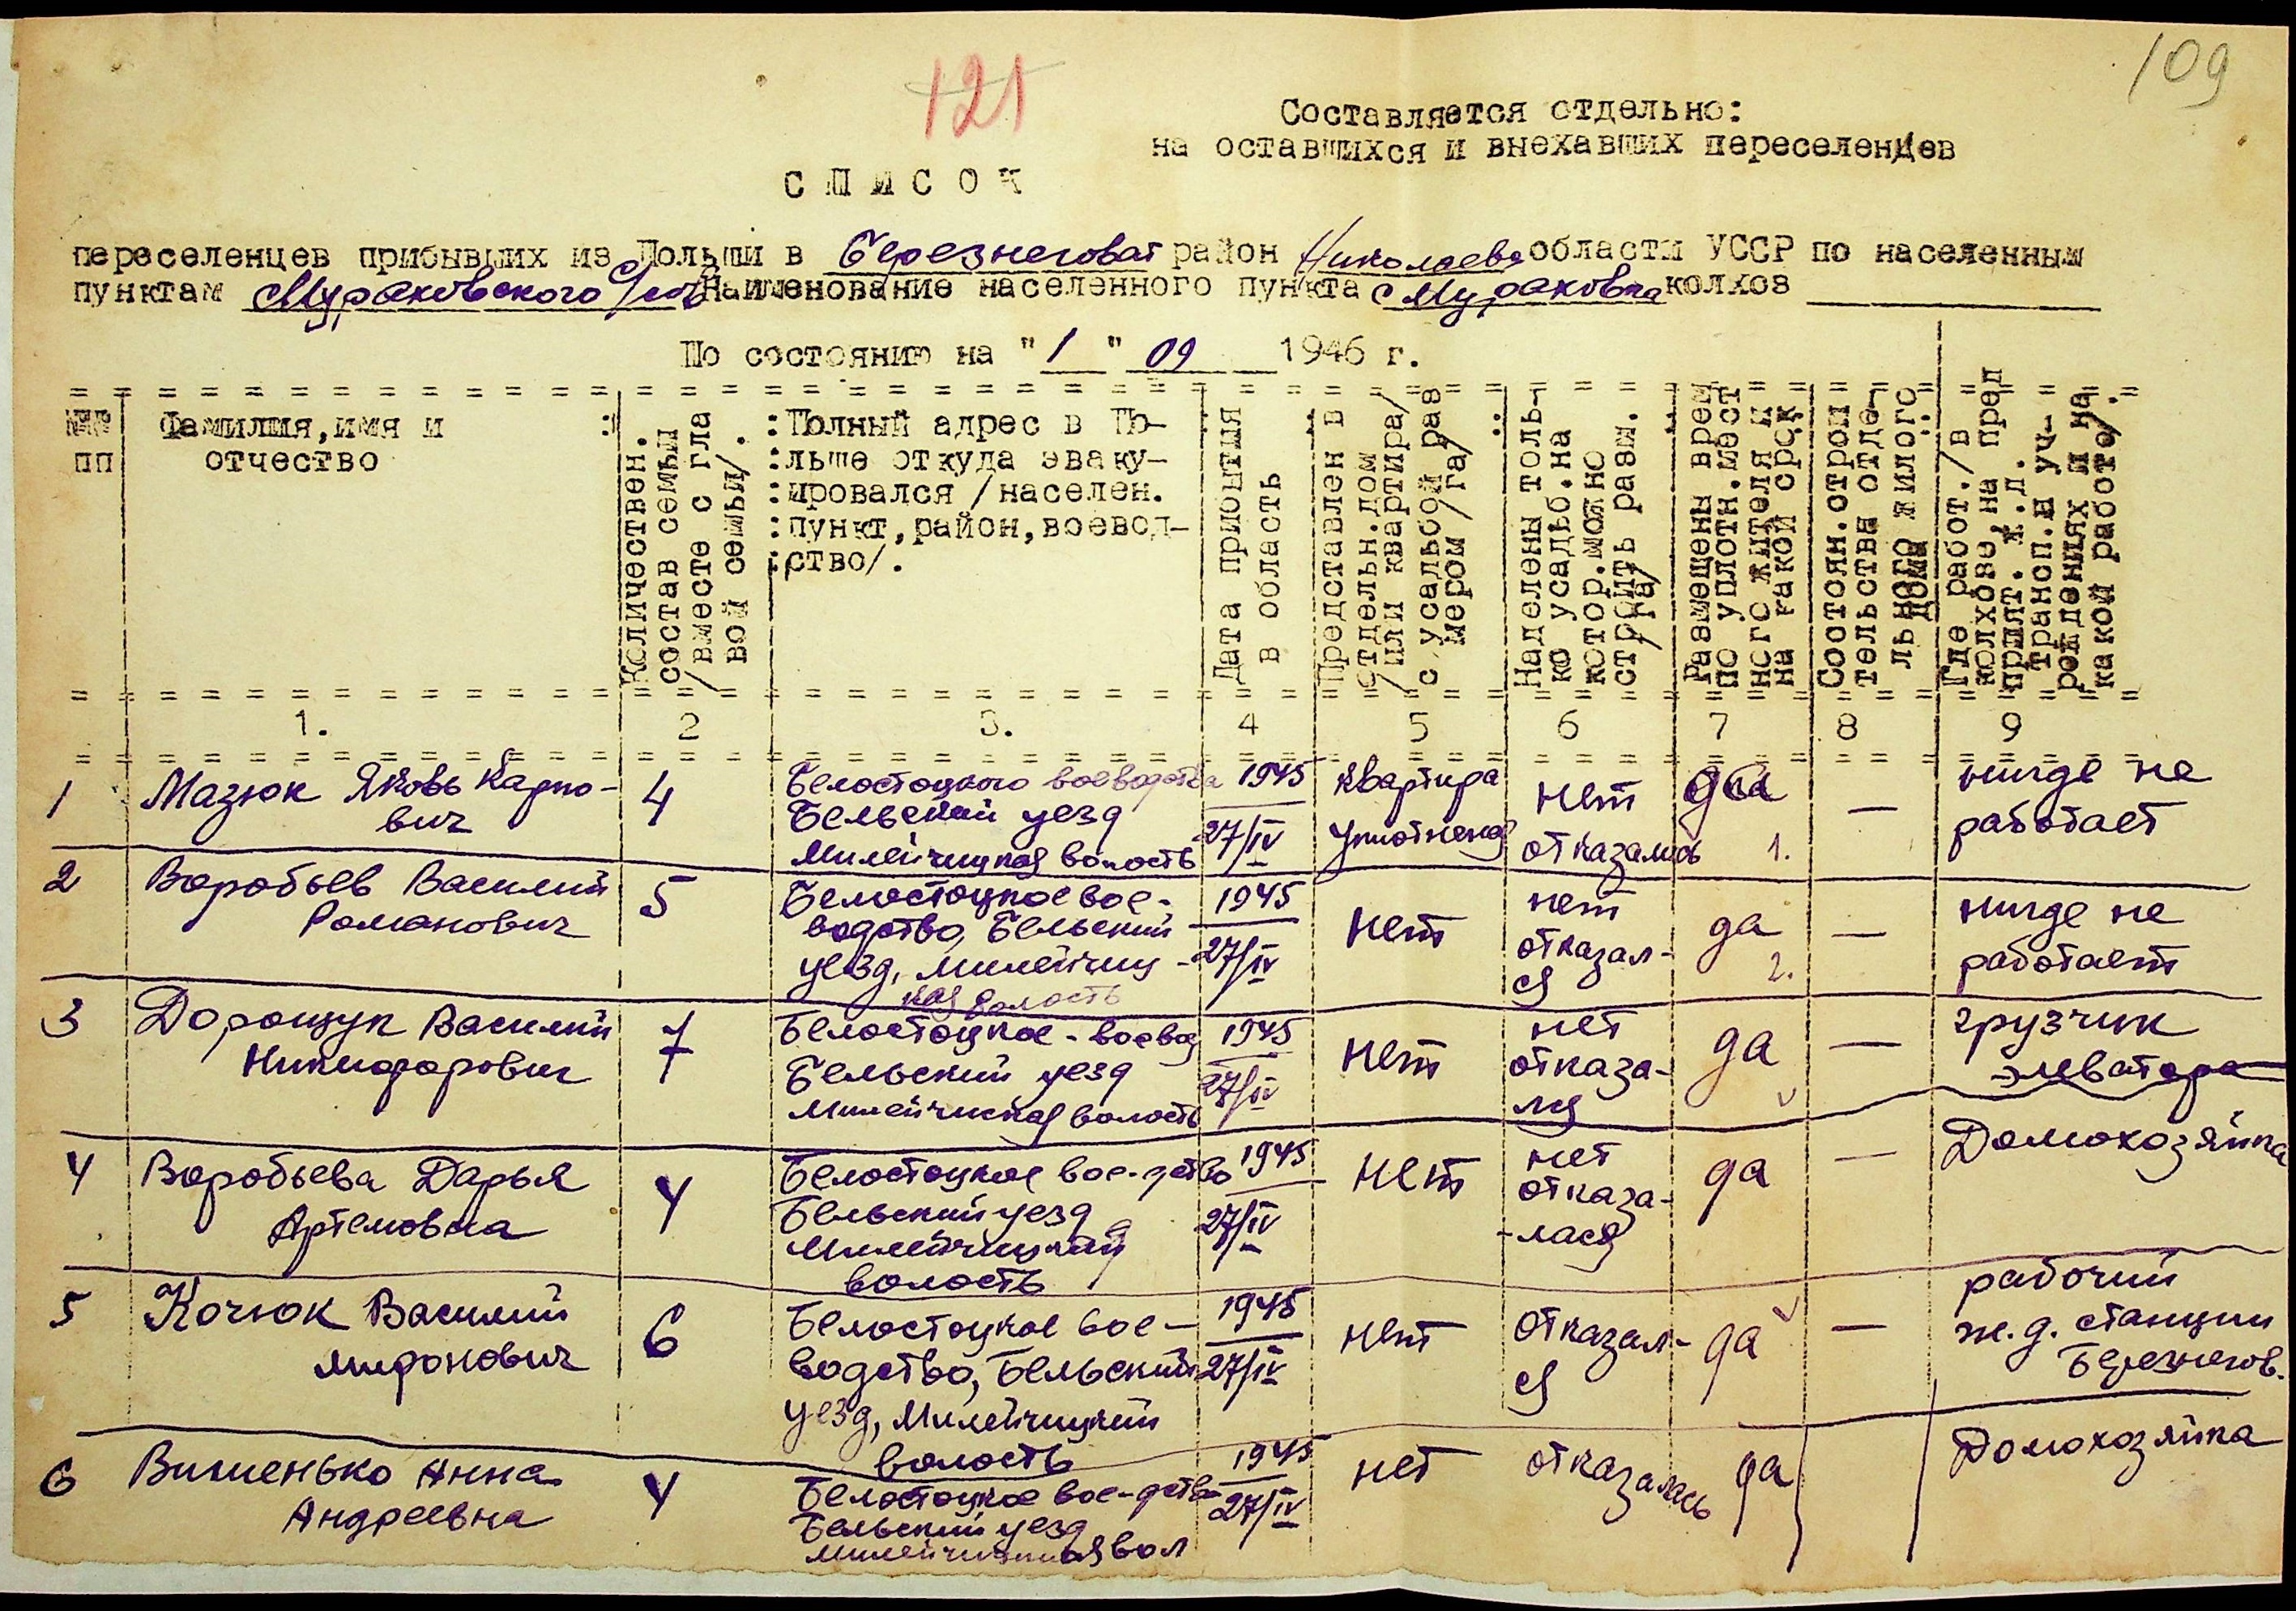 121
109
Составляется отдельно:
на оставшихся и выехавших переселенцев
СПИСОК
переселенцев прибывших из Польши в Березнеговат район Николаевс области УССР по населенным
пунктам Мураховского с/сов Наименование населенного пункта с Мураховка колхоз
По состоянию на "1" 09 1946 г.
№№
пп
Фамилия, имя и
отчество
Количествен.
состав семьи
/вместе с гла
вой семьи/.
Полный адрес в По-
льше откуда эваку-
ировался /населен.
пункт, район, воевод-
ство/.
Дата прибытия
в область
Представлен в
отдельн.дом
/или квартира/
с усадьбой раз
мером /га/
Наделены толь-
ко усадьб.на
котор.можно
строить разм.
/га/
Размещены врем
по уплотн.мест
ного жителя и
на какой срок
Состоян.строи
тельства отде-
льного жилого
дома
Где работ./в
колхозе, на пред
прият. ж.д.
трансп.и уч-
реждениях и на
какой работе/.
1. 2 3. 4 5 6 7 8 9
1 Мазюк Яковь Карпо-
вич
4
Белостоцкого воеводства
Бельский уезд
Милейчицкая волость
1945
27/IV
квартира
уплотнена
нет
отказались
да
1.
—
нигде не
работает
2 Воробьев Василий
Романович
5
Белостоцкое вое-
водство, Бельский
уезд, Милейчиц-
кая волость
1945
27/IV
нет
нет
отказал-
ся
да
2.
—
нигде не
работает
3 Дорощук Василий
Никифорович
7
Белостоцкое - воевод
Бельский уезд
Милейчиская волость
1945
27/IV
нет
нет
отказа-
лся
да
—
грузчик
элеватора
4 Воробьева Дарья
Артемовна
4
Белостоцкое вое-дство
Бельский уезд
Милейчицкая
волость
1945
27/IV
нет
нет
отказа-
-лася
да
—
Домохозяйка
5 Кочюк Василий
Миронович
6
Белостоцкое вое-
водство, Бельский
уезд, Милейчицкий
волость
1945
27/IV
нет
отказал-
ся
да
—
рабочий
ж.д. станции
Березнегов.
6 Вишенько Анна
Андреевна
4
Белостоцкое вое-дство
Бельский уезд
Милейчицкая вол
1945
27/IV
нет
отказалась
да
Домохозяйка